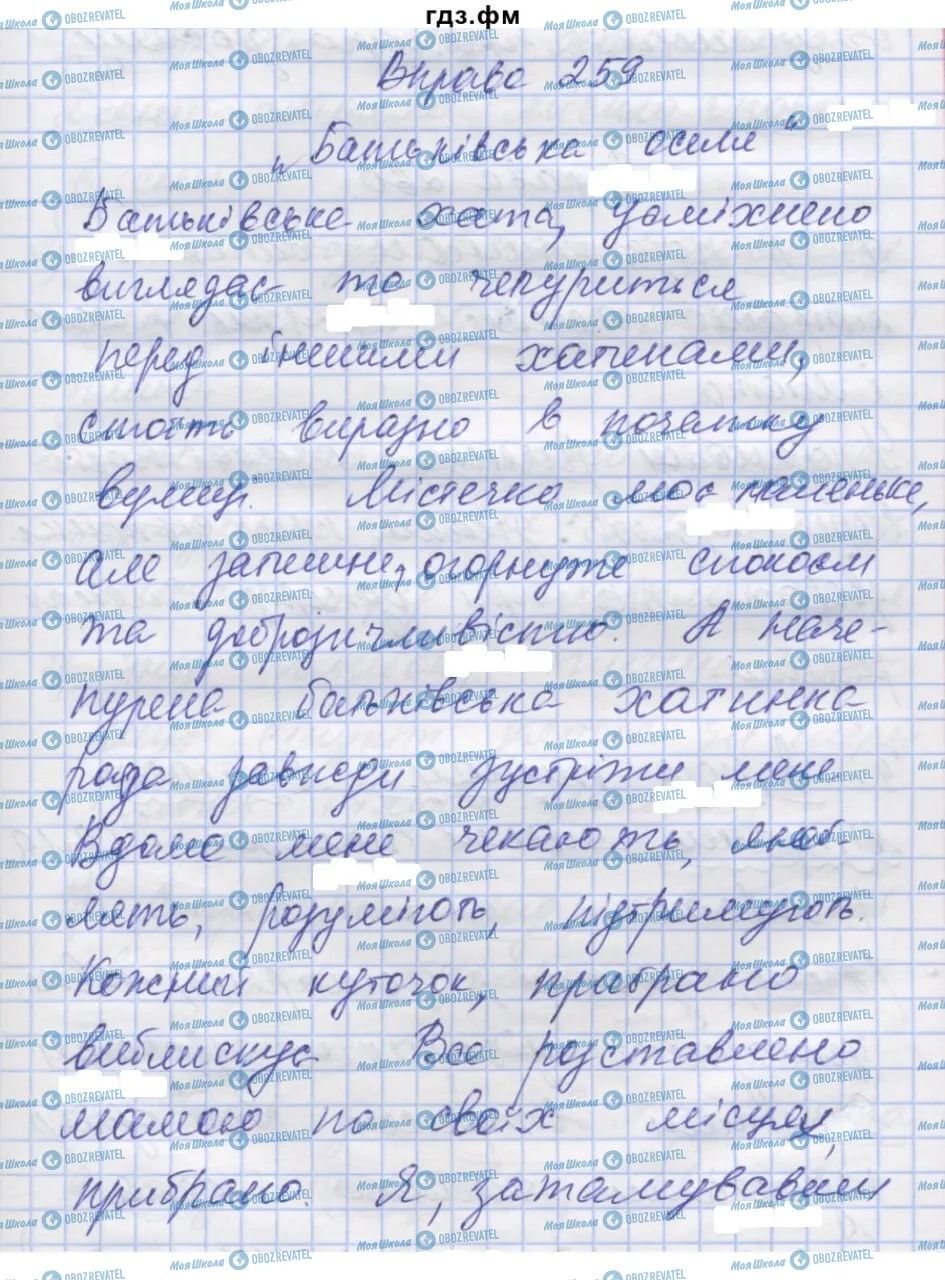 гдз.фм
Вправа 259
"Батьківська оселя"
Батьківська хата, усміхнено
виглядає та чепуриться
перед іншими хатинами,
стоїть виразно в початку
вулиці. Містечко моє маленьке,
але затишне, огорнуте спокоєм
та доброзичливістю. А наче-
пурена батьківська хатинка
рада завжди зустріти мене
Вдома мене чекають, люб-
лять, розуміють, підтримують.
Кожний куточок, прибрано
виблискує Все розставлено
мамою по своїх місцях,
прибрано. Я, затамувавши